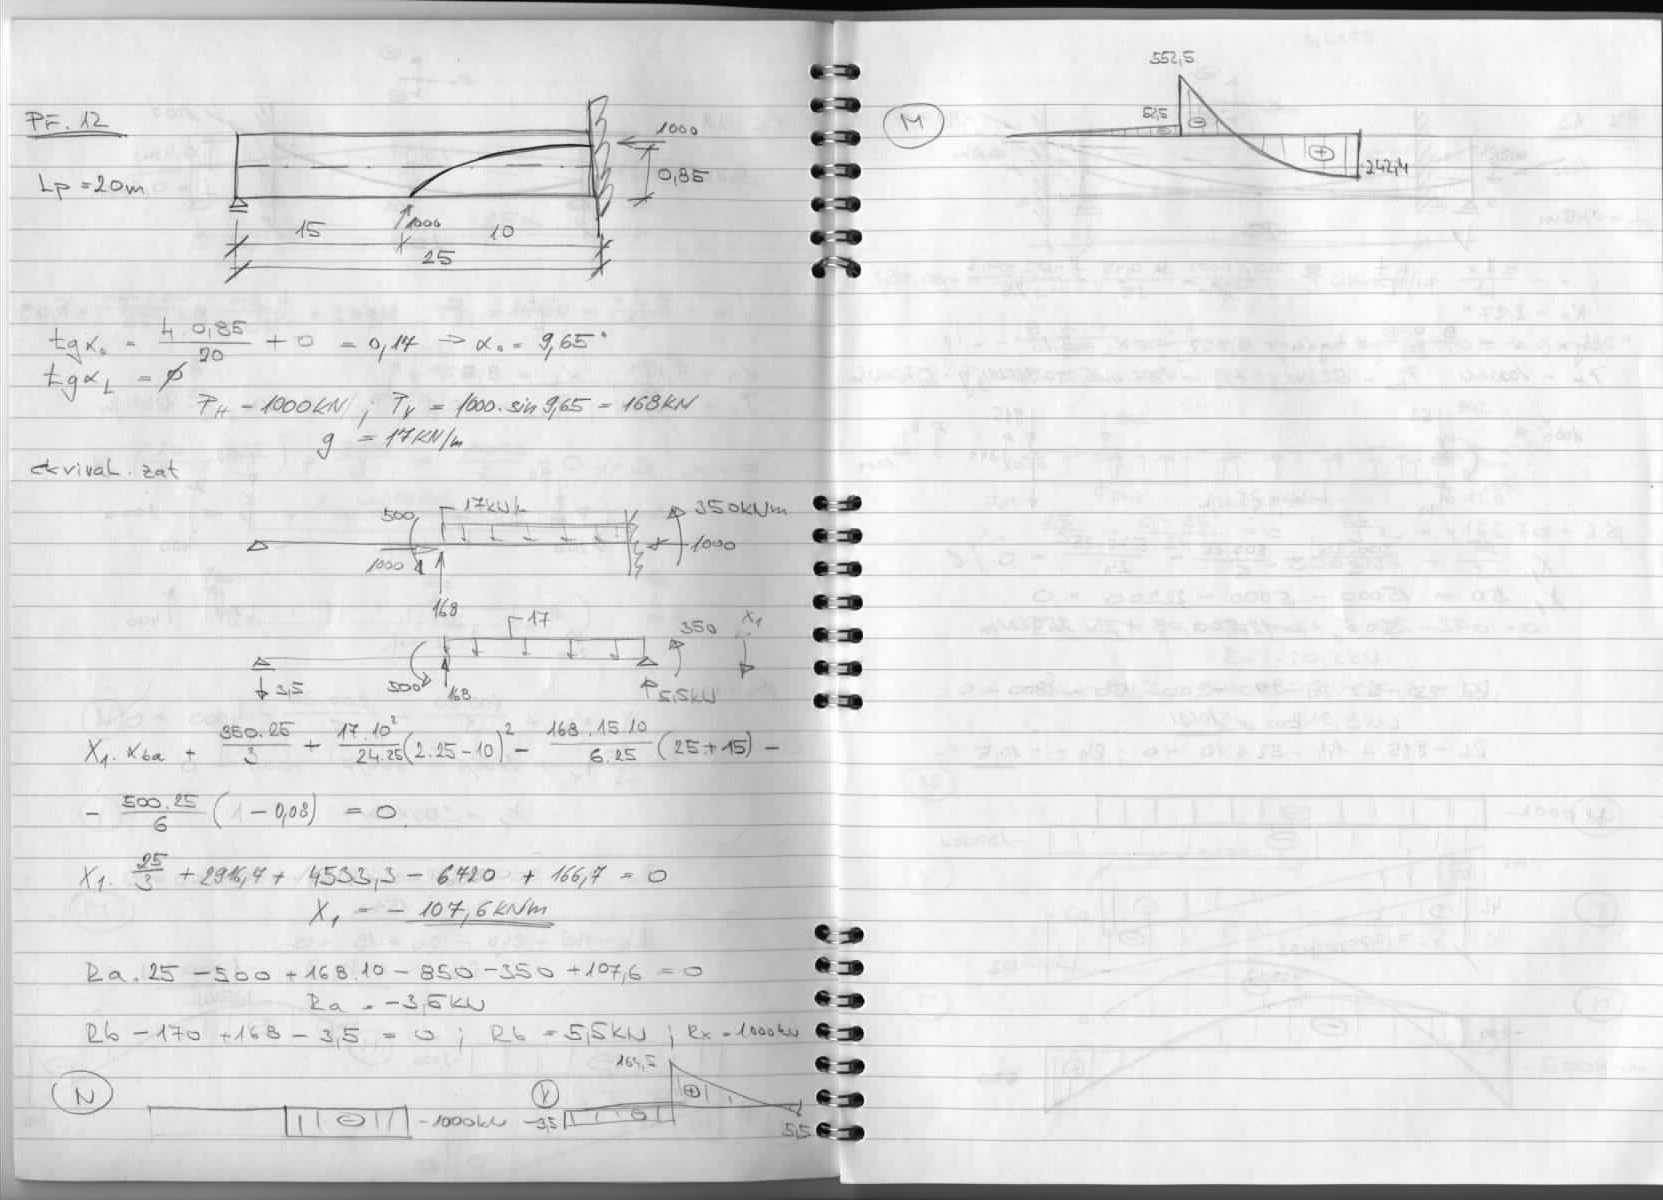 PF. 12
Lp = 20m
1000
0,85
1000
15
10
25
tgα₀ = 4.0,85/20 + 0 = 0,17 => α₀ = 9,65°
tgα_L = ø
P_H = 1000KN ; P_V = 1000.sin9,65 = 168KN
g = 17KN/m
ekvival. zat
500
17KN/
350kNm
1000
1000
168
17
350
X1
3,5
500
168
5,5kN
X₁. α_ba + 350.25/3 + 17.10²/24.25 (2.25-10)² - 168.15.10/6.25 (25+15) -
- 500.25/6 (1-0,08) = 0
X₁. 25/3 + 2916,7 + 4533,3 - 6720 + 166,7 = 0
X₁ = - 107,6kNm
Ra.25 - 500 + 168.10 - 850 - 350 + 107,6 = 0
Ra = -3,5kN
Rb - 170 + 168 - 3,5 = 0 ; Rb = 5,5kN ; Rx = 1000kN
N
-1000kN
V
164,5
⊕
-3,5
⊖
5,5
M
552,5
52,5
⊖
⊕
242,4